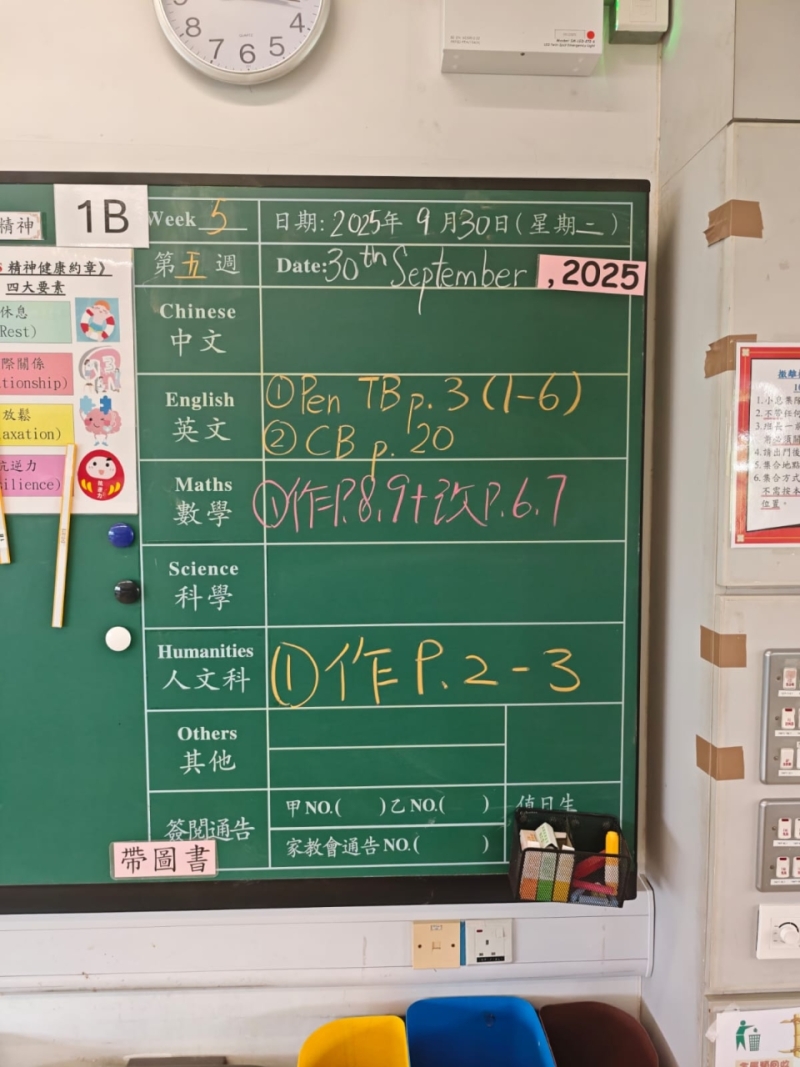 8 7 6 5 4
精神
1B
Week 5
日期: 2025年 9月30日(星期二)
精神健康約章》
第五週
Date: 30th September , 2025
四大要素
休息
Rest)
際關係
tionship)
放鬆
axation)
抗逆力
silience)
Chinese
中文
English
英文
① Pen TB p. 3 (1-6)
② CB p. 20
Maths
數學
① 作P.8,9+改P.6,7
Science
科學
Humanities
人文科
① 作 P. 2-3
Others
其他
簽閱通告
甲NO.( )乙NO.( )
值日生
家教會通告NO.( )
帶圖書
1.小息集隊
2.不帶任何
4.請出門後
5.集合地點
6.集合方式
不需按本
位置。